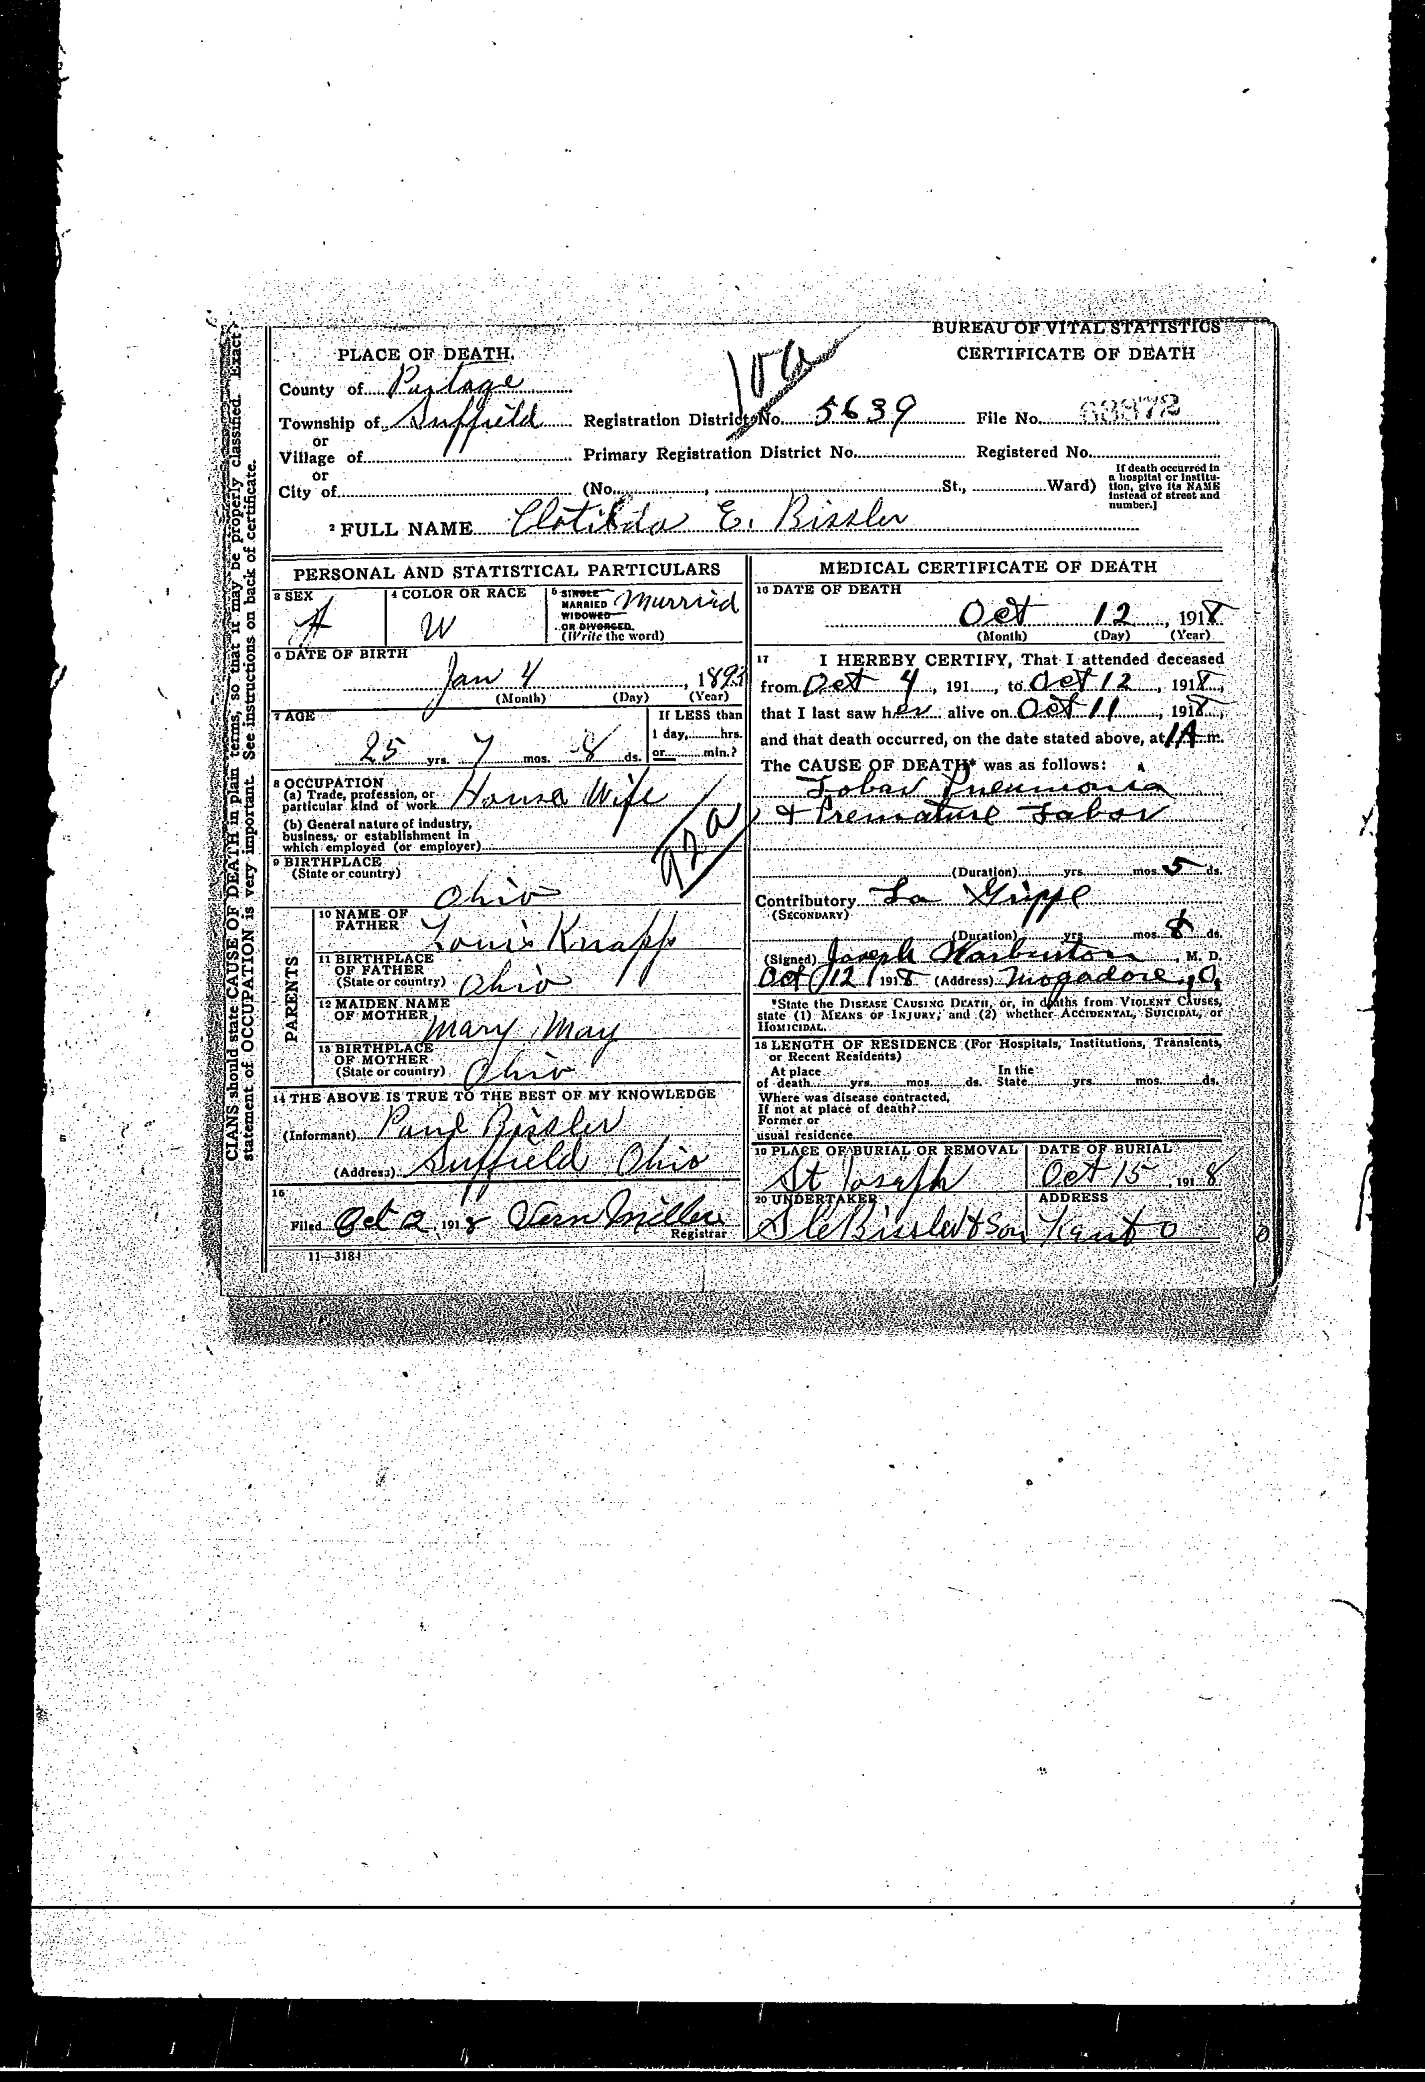 BUREAU OF VITAL STATISTICS
CERTIFICATE OF DEATH
PLACE OF DEATH.
County of Portage
Township of Suffield Registration District No. 5639 File No. 63872
10a
or
Village of Primary Registration District No. Registered No.
or
City of (No. , St., Ward)
If death occurred in
a hospital or institu-
tion, give its NAME
instead of street and
number.]
2 FULL NAME Clotilda E. Bissler
PERSONAL AND STATISTICAL PARTICULARS
3 SEX
F
4 COLOR OR RACE
W
5 SINGLE
MARRIED
WIDOWED
OR DIVORCED.
(Write the word)
Married
6 DATE OF BIRTH
Jan 4, 1893
(Month) (Day) (Year)
7 AGE
25 yrs. 7 mos. 8 ds.
If LESS than
1 day, hrs.
or min.?
8 OCCUPATION
(a) Trade, profession, or
particular kind of work House Wife
(b) General nature of industry,
business, or establishment in
which employed (or employer)
92a
9 BIRTHPLACE
(State or country)
Ohio
PARENTS
10 NAME OF
FATHER
Louis Knapp
11 BIRTHPLACE
OF FATHER
(State or country) Ohio
12 MAIDEN NAME
OF MOTHER
Mary May
13 BIRTHPLACE
OF MOTHER
(State or country) Ohio
14 THE ABOVE IS TRUE TO THE BEST OF MY KNOWLEDGE
(Informant) Paul Bissler
(Address) Suffield Ohio
15
Filed Oct 2, 1918 Vern Miller
Registrar
11—3184
MEDICAL CERTIFICATE OF DEATH
16 DATE OF DEATH
Oct 12, 1918
(Month) (Day) (Year)
17 I HEREBY CERTIFY, That I attended deceased
from Oct 4, 191 , to Oct 12, 1918,
that I last saw her alive on Oct 11, 1918,
and that death occurred, on the date stated above, at 1A m.
The CAUSE OF DEATH* was as follows:
Lobar Pneumonia
& Premature Labor
(Duration) yrs. mos. 5 ds.
Contributory La Grippe
(SECONDARY)
(Duration) yrs. mos. 8 ds.
(Signed) Joseph Warburton, M. D.
Oct 12, 1918 (Address) Mogadore, O,
*State the DISEASE CAUSING DEATH, or, in deaths from VIOLENT CAUSES,
state (1) MEANS OF INJURY; and (2) whether ACCIDENTAL, SUICIDAL, or
HOMICIDAL.
18 LENGTH OF RESIDENCE (For Hospitals, Institutions, Transients,
or Recent Residents)
At place In the
of death yrs. mos. ds. State yrs. mos. ds.
Where was disease contracted,
If not at place of death?
Former or
usual residence
19 PLACE OF BURIAL OR REMOVAL
St Joseph
DATE OF BURIAL
Oct 15, 1918
20 UNDERTAKER
Bissler & Son
ADDRESS
Kent O
CIANS should state CAUSE OF DEATH in plain terms, so that it may be properly classified. Exact
statement of OCCUPATION is very important. See instructions on back of certificate.